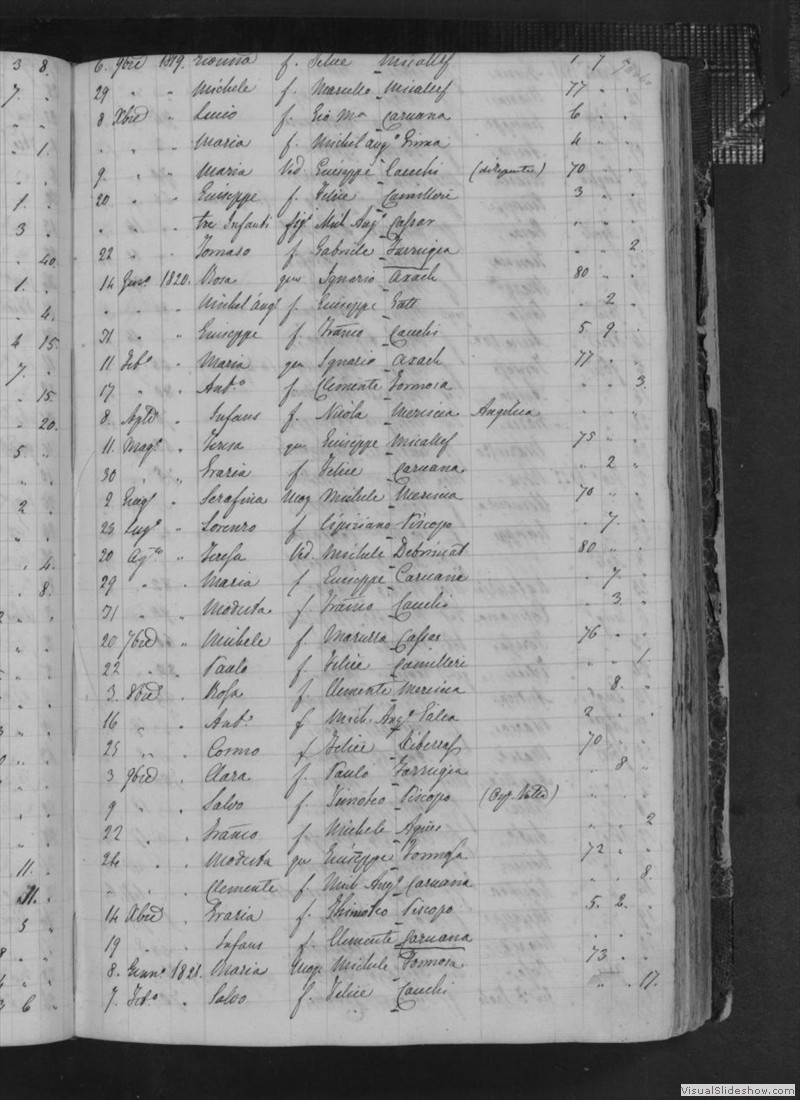 3 8.
7.
1.
1.
3
40.
1.
4.
4 15.
7.
15.
20.
5
2
4.
8.
11.
11.
5
6
6. 9bre 1819. f. Felice Micallef 1 7
29 " " Michele f. Marcello Micallef 77 " "
8 Xbre " Lucio f. Gio Ma Caruana 6 " "
" " " Maria f. Michel Ang.o 4 " "
9 " " Maria Ved. Giuseppe Cauchi 70 " "
20 " " Giuseppe f. Felice Camilleri 3 " "
" " " tre Infanti figi Mich Ang.o Cassar " " "
22 " " Tomaso f. Gabriele Farrugia " " 2.
14 Gen.o 1820. Rosa qm Ignazio Axach 80 " "
" " " Michel Ang.o f. Giuseppe Gatt " 2 "
31 " " Giuseppe f. Franco Cauchi 5 9 "
11 Feb.o " Maria qm Ignazio Axach 77 " "
17 " " Ant.o f. Clemente Formosa " " 3.
8. Aple " Infans f. Nicola Mercieca Angelica " " "
11. Mag.o " Teresa qm Giuseppe Micallef 75 " "
30 " " Grazia f. Felice Caruana " 2 "
2 Giug.o " Serafina Mog Michele Mercieca 70 " "
25 Lug.o " Lorenzo f. Cipriano Piscopo " 7. "
20 Ag.to " Teresa Ved. Michele Debrincat 80 " "
29 " " Maria f. Giuseppe Caruana " 7. "
31 " " Modesta f. Franco Cauchi " 3. "
20 7bre " Michele f. Cassar 76 " "
22 " " Paulo f. Felice Camilleri " " 1.
3. 8bre " Rosa f. Clemente Mercieca " 8. "
16 " " Ant.o f. Mich. Ang.o Galea 2 " "
25 " " Cosmo f. Felice 70 " "
3 9bre " Clara f. Paulo Farrugia " 8 "
9 " " Salvo f. Timoteo Piscopo " " "
22 " " Franco f. Michele Agius " " 2
24 " " Modesta qm Giuseppe Formosa 72 " "
" " " Clemente f. Mich Ang.o Caruana " " 8.
14 Xbre " Grazia f. Thimoteo Piscopo 5. 2. "
19 " " Infans f. Clemente Caruana " " "
8. Genn.o 1821. Maria Mog. Michele Formosa 73 " "
7. Feb.o " Salvo f. Felice Cauchi " " 17.
VisualSlideshow.com